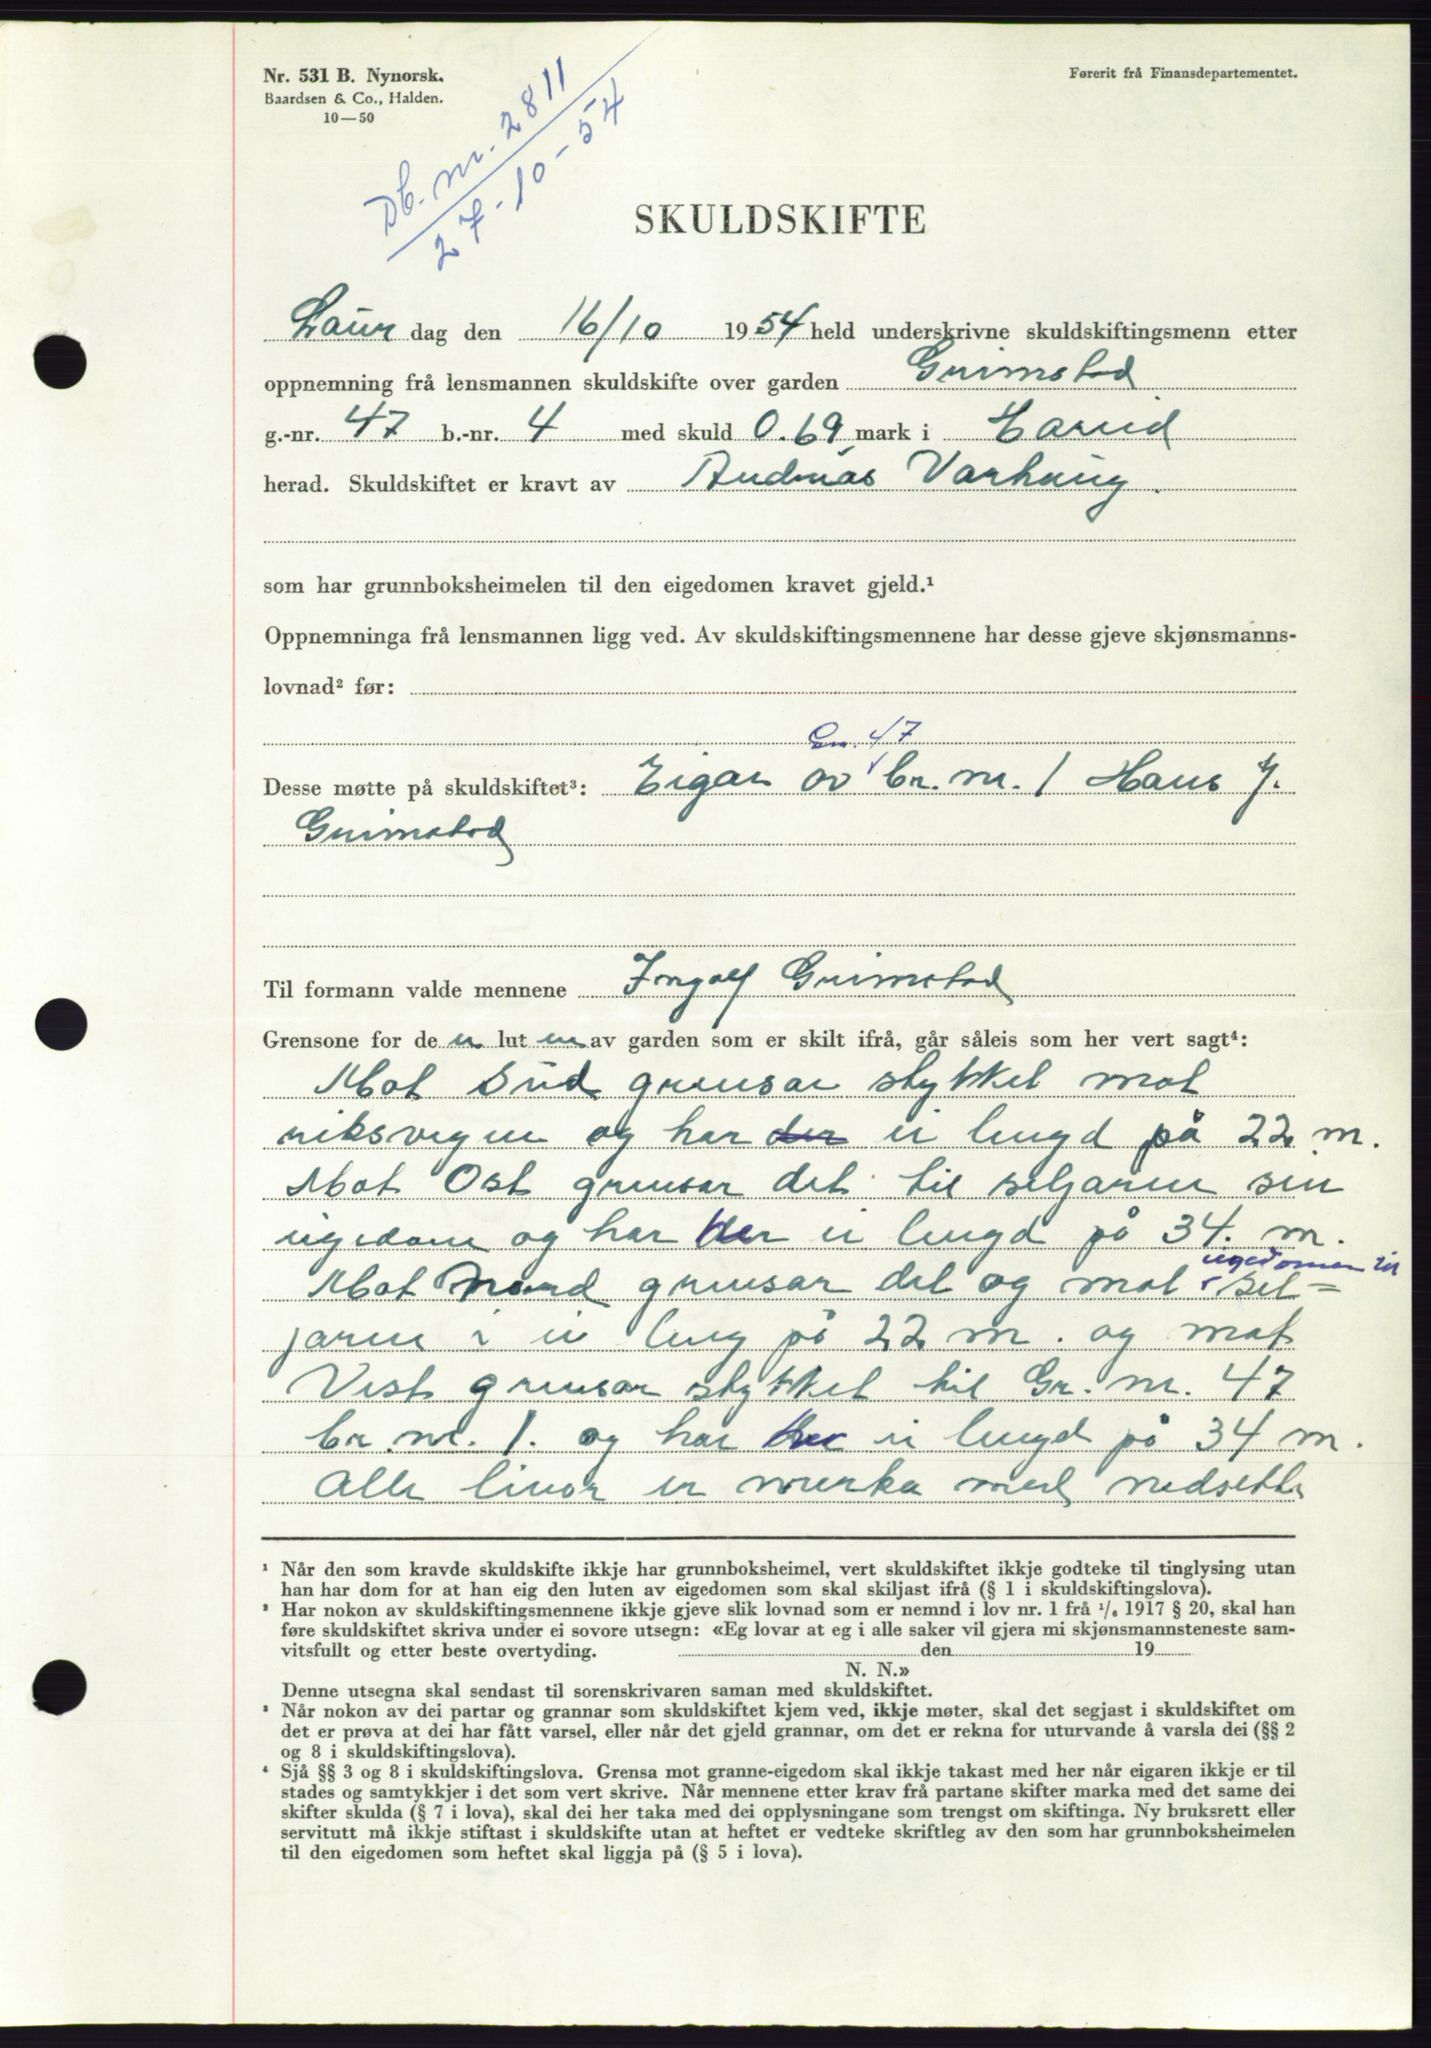 Nr. 531 B. Nynorsk.
Baardsen & Co., Halden.
10—50
Førerit frå Finansdepartementet.
Db. nr. 2811
27-10-54
SKULDSKIFTE
Laur dag den 16/10 1954 held underskrivne skuldskiftingsmenn etter
oppnemning frå lensmannen skuldskifte over garden Grimstad
g.-nr. 47 b.-nr. 4 med skuld 0.69 mark i Hareid
herad. Skuldskiftet er kravt av Andreas Varhaug.
som har grunnboksheimelen til den eigedomen kravet gjeld.¹
Oppnemninga frå lensmannen ligg ved. Av skuldskiftingsmennene har desse gjeve skjønsmanns-
lovnad² før:
Gnr. 47
Desse møtte på skuldskiftet³: Eigar av br. nr. 1 Hans J.
Grimstad
Til formann valde mennene Ingolf Grimstad
Grensone for de n lut en av garden som er skilt ifrå, går såleis som her vert sagt⁴:
Mot Sud grensar stykket mot
riksvegen og har der ei lengd på 22 m.
Mot Ost grensar det til seljaren sin
eigedom og har der ei lengd på 34. m.
eigedomen til
Mot Nord grensar det og mot sel=
jaren i ei leng på 22 m. og mot
Vest grensar stykket til Gr. nr. 47
br. nr. 1. og har der ei lengd på 34 m.
Alle linor er merka med nedsette
¹ Når den som kravde skuldskifte ikkje har grunnboksheimel, vert skuldskiftet ikkje godteke til tinglysing utan
han har dom for at han eig den luten av eigedomen som skal skiljast ifrå (§ 1 i skuldskiftingslova).
² Har nokon av skuldskiftingsmennene ikkje gjeve slik lovnad som er nemnd i lov nr. 1 frå ¹/₆ 1917 § 20, skal han
føre skuldskiftet skriva under ei sovore utsegn: «Eg lovar at eg i alle saker vil gjera mi skjønsmannsteneste sam-
vitsfullt og etter beste overtyding. den 19
N. N.»
Denne utsegna skal sendast til sorenskrivaren saman med skuldskiftet.
³ Når nokon av dei partar og grannar som skuldskiftet kjem ved, ikkje møter, skal det segjast i skuldskiftet om
det er prøva at dei har fått varsel, eller når det gjeld grannar, om det er rekna for uturvande å varsla dei (§§ 2
og 8 i skuldskiftingslova).
⁴ Sjå §§ 3 og 8 i skuldskiftingslova. Grensa mot granne-eigedom skal ikkje takast med her når eigaren ikkje er til
stades og samtykkjer i det som vert skrive. Når mennene etter krav frå partane skifter marka med det same dei
skifter skulda (§ 7 i lova), skal dei her taka med dei opplysningane som trengst om skiftinga. Ny bruksrett eller
servitutt må ikkje stiftast i skuldskifte utan at heftet er vedteke skriftleg av den som har grunnboksheimelen
til den eigedomen som heftet skal liggja på (§ 5 i lova).